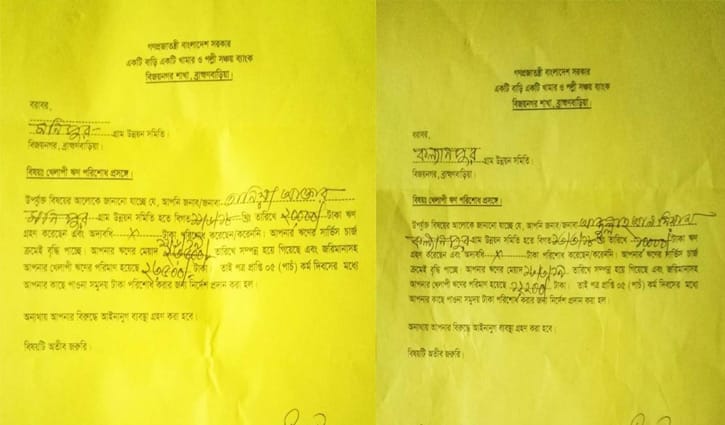 গণপ্রজাতন্ত্রী বাংলাদেশ সরকার
একটি বাড়ি একটি খামার ও পল্লী সঞ্চয় ব্যাংক
বিজয়নগর শাখা, ব্রাহ্মণবাড়িয়া।
বরাবর,
মনিপুর গ্রাম উন্নয়ন সমিতি।
বিজয়নগর, ব্রাহ্মণবাড়িয়া।
বিষয়ঃ খেলাপী ঋণ পরিশোধ প্রসঙ্গে।
উপর্যুক্ত বিষয়ের আলোকে জানানো যাচ্ছে যে, আপনি জনাব/জনাবা আক্তার
মনিপুর গ্রাম উন্নয়ন সমিতি হতে বিগত তারিখে ২০০০০/ টাকা ঋণ
গ্রহণ করেছেন এবং অদ্যবধি x টাকা পরিশোধ করেছেন/করেননি। আপনার ঋণের সার্ভিস চার্জ
ক্রমেই বৃদ্ধি পাচ্ছে। আপনার ঋণের মেয়াদ তারিখে সম্পন্ন হয়ে গিয়েছে এবং জরিমানাসহ
আপনার খেলাপী ঋণের পরিমাণ হয়েছে টাকা। তাই পত্র প্রাপ্তি ০৫ (পাচঁ) কর্ম দিবসের মধ্যে
আপনার কাছে পাওনা সমুদয় টাকা পরিশোধ করার জন্য নির্দেশ প্রদান করা হল।
অন্যথায় আপনার বিরুদ্ধে আইনানুগ ব্যবস্থা গ্রহণ করা হবে।
বিষয়টি অতীব জরুরি।
গণপ্রজাতন্ত্রী বাংলাদেশ সরকার
একটি বাড়ি একটি খামার ও পল্লী সঞ্চয় ব্যাংক
বিজয়নগর শাখা, ব্রাহ্মণবাড়িয়া।
বরাবর,
কল্যানপুর গ্রাম উন্নয়ন সমিতি।
বিজয়নগর, ব্রাহ্মণবাড়িয়া।
বিষয়ঃ খেলাপী ঋণ পরিশোধ প্রসঙ্গে।
উপর্যুক্ত বিষয়ের আলোকে জানানো যাচ্ছে যে, আপনি জনাব/জনাবা
কল্যানপুর গ্রাম উন্নয়ন সমিতি হতে বিগত তারিখে ১০০০০/ টাকা ঋণ
গ্রহণ করেছেন এবং অদ্যবধি x টাকা পরিশোধ করেছেন/করেননি। আপনার ঋণের সার্ভিস চার্জ
ক্রমেই বৃদ্ধি পাচ্ছে। আপনার ঋণের মেয়াদ তারিখে সম্পন্ন হয়ে গিয়েছে এবং জরিমানাসহ
আপনার খেলাপী ঋণের পরিমাণ হয়েছে টাকা। তাই পত্র প্রাপ্তি ০৫ (পাচঁ) কর্ম দিবসের মধ্যে
আপনার কাছে পাওনা সমুদয় টাকা পরিশোধ করার জন্য নির্দেশ প্রদান করা হল।
অন্যথায় আপনার বিরুদ্ধে আইনানুগ ব্যবস্থা গ্রহণ করা হবে।
বিষয়টি অতীব জরুরি।